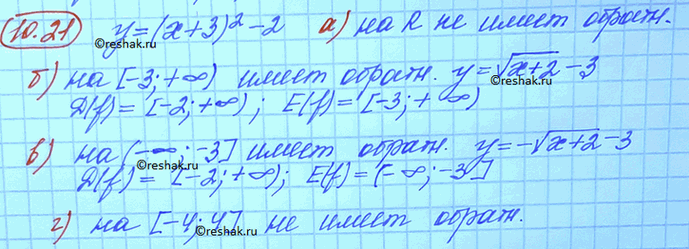 10.21 y=(x+3)² -2 а) на R не имеет обратн.
©reshak.ru
б) на [-3;+∞) имеет обратн. y=√x+2 -3
Д(f)= [-2;+∞); E(f)=[-3;+∞)
©reshak.ru
в) на (-∞;-3] имеет обратн. y=-√x+2 -3
Д(f)= [-2;+∞); E(f)=(-∞;-3]
г) на [-4;4] не имеет обратн.
©reshak.ru